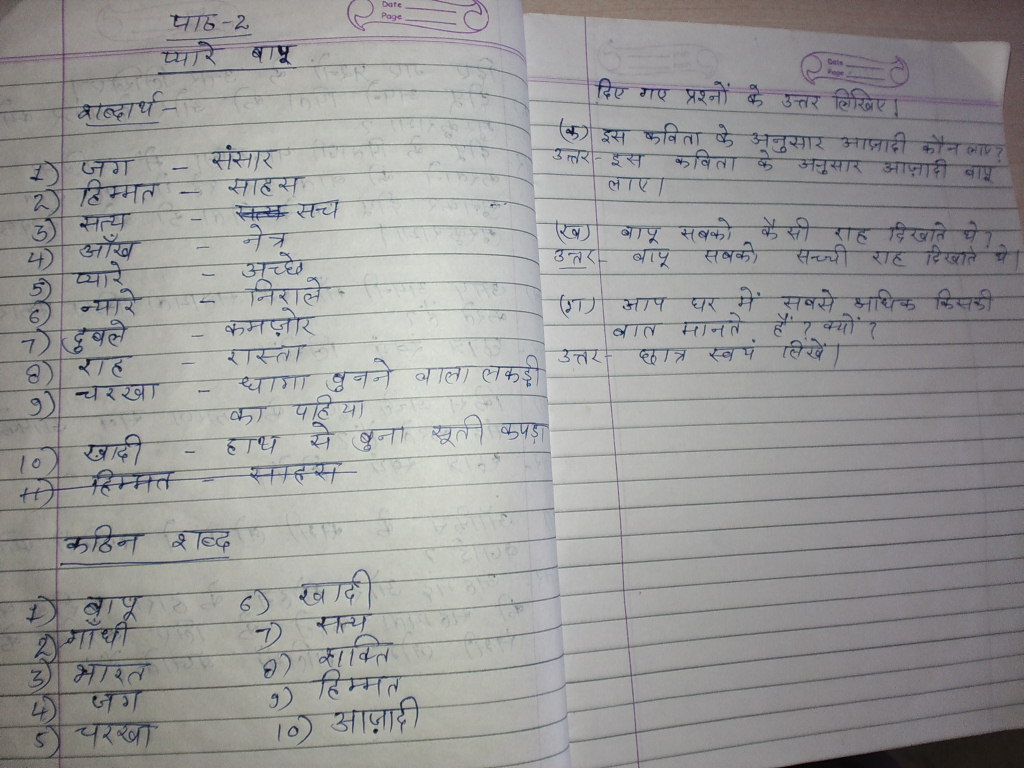 Date
Page
पाठ-2
प्यारे बापू
शब्दार्थ-
1) जग - संसार
2) हिम्मत - साहस
3) सत्य - सत्य सच
4) आँख - नेत्र
5) प्यारे - अच्छे
6) न्यारे - निराले
7) दुबले - कमज़ोर
8) राह - रास्ता
9) चरखा - धागा बुनने वाला लकड़ी
का पहिया
10) खादी - हाथ से बुना सूती कपड़ा
11) हिम्मत - साहस
कठिन शब्द
1) बापू
2) गाँधी
3) भारत
4) जग
5) चरखा
6) खादी
7) सत्य
8) शक्ति
9) हिम्मत
10) आज़ादी
Date
Page
दिए गए प्रश्नों के उत्तर लिखिए।
(क) इस कविता के अनुसार आज़ादी कौन लाए?
उत्तर- इस कविता के अनुसार आज़ादी बापू
लाए।
(ख) बापू सबको कैसी राह दिखाते थे?
उत्तर- बापू सबको सच्ची राह दिखाते थे।
(ग) आप घर में सबसे अधिक किसकी
बात मानते हैं? क्यों?
उत्तर- छात्र स्वयं लिखें।